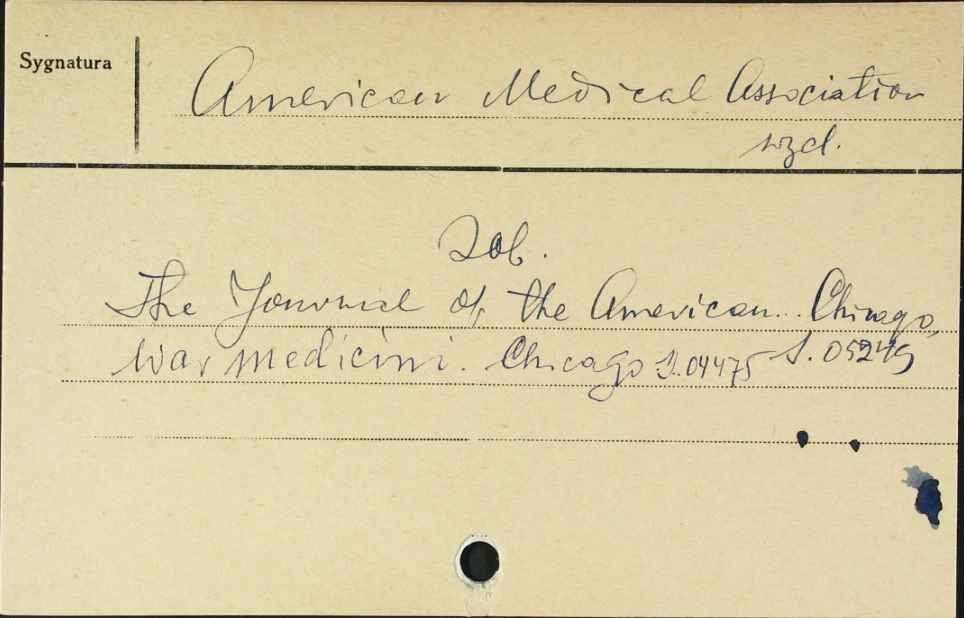 Sygnatura
American Medical Association
wyd.
Zob.
The Journal of the American... Chicago,
War medicini. Chicago J.04475 S.05249